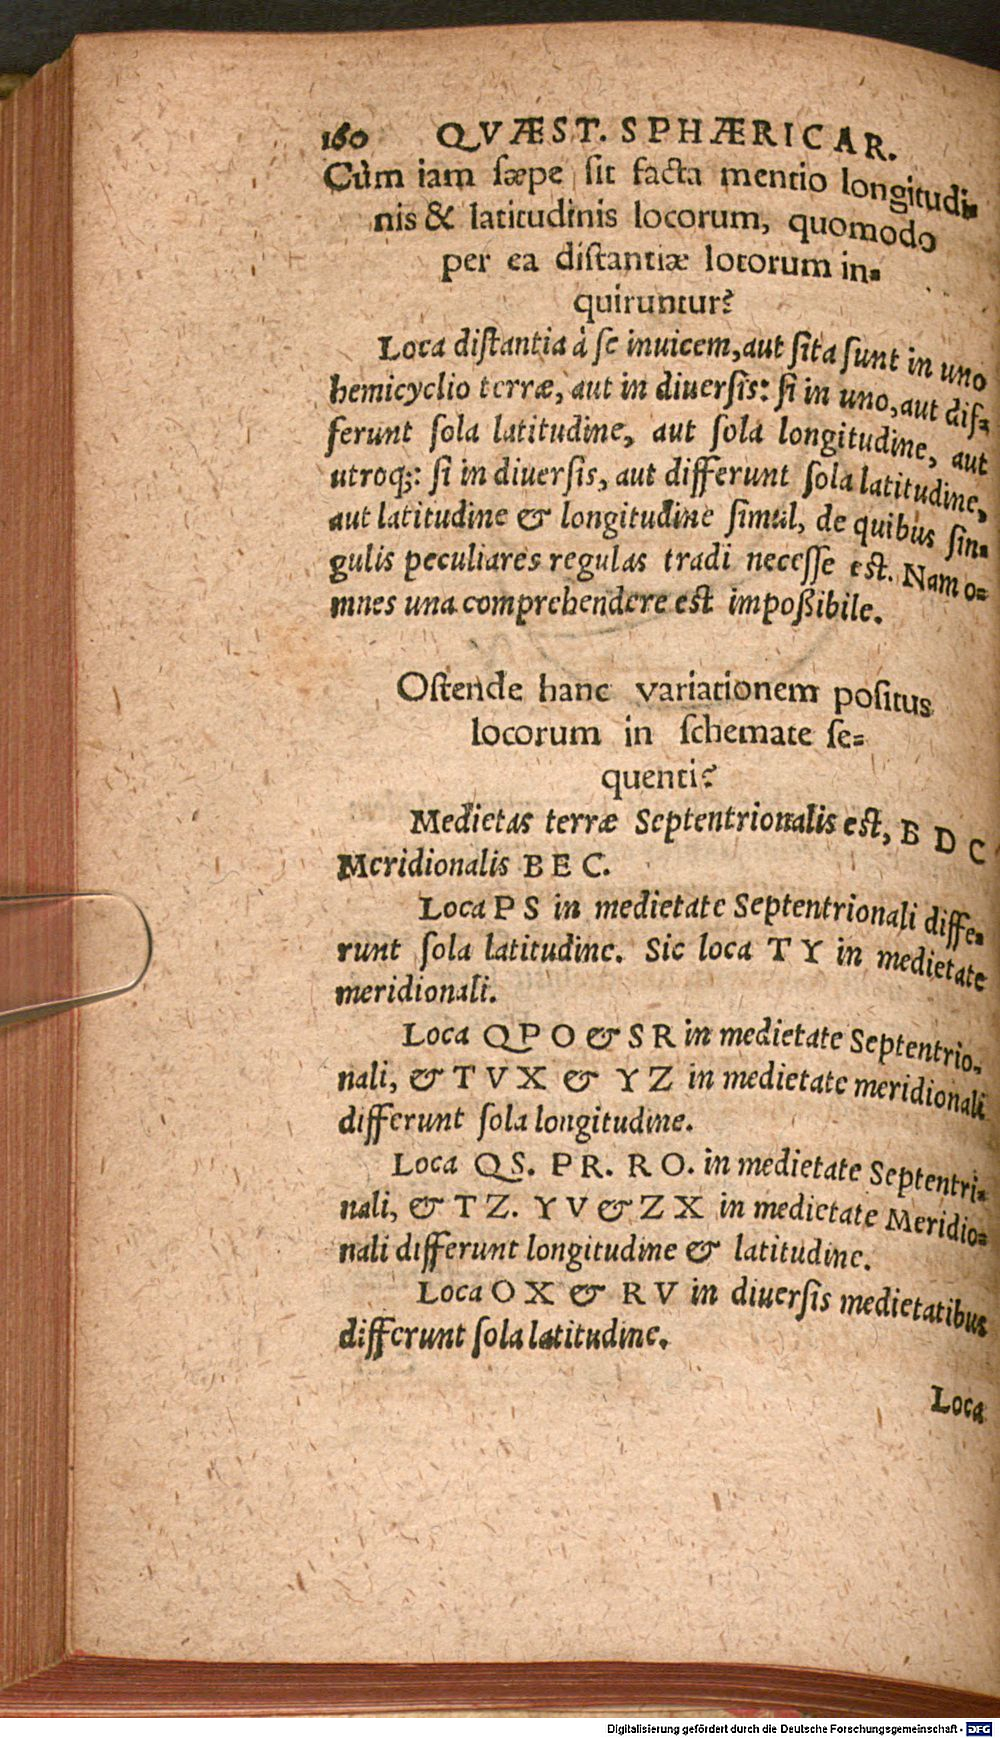 160 QVÆST. SPHÆRICAR.
Cùm iam ſæpe sit facta mentio longitudi⸗
nis & latitudinis locorum, quomodo
per ea diſtantiæ locorum in⸗
quiruntur?
Loca diſtantia à ſe inuicem, aut ſita ſunt in uno
hemicyclio terræ, aut in diuerſis: ſi in uno, aut dif⸗
ferunt ſola latitudine, aut ſola longitudine, aut
utroq;: ſi in diuerſis, aut differunt ſola latitudine,
aut latitudine & longitudine ſimul, de quibus ſin⸗
gulis peculiares regulas tradi neceſſe eſt. Nam o⸗
mnes una comprehendere eſt impoßibile.
Oſtende hanc variationem poſitus
locorum in ſchemate ſe⸗
quenti?
Medietas terræ Septentrionalis eſt, B D C
Meridionalis B E C.
Loca P S in medietate Septentrionali diffe⸗
runt ſola latitudine. Sic loca T Y in medietate
meridionali.
Loca Q P O & S R in medietate Septentrio⸗
nali, & T V X & Y Z in medietate meridionali
differunt ſola longitudine.
Loca Q S. P R. R O. in medietate Septentri⸗
nali, & T Z. Y V & Z X in medietate Meridio⸗
nali differunt longitudine & latitudine.
Loca O X & R V in diuerſis medietatibus
differunt ſola latitudine.
Loca
Digitalisierung gefördert durch die Deutsche Forschungsgemeinschaft - DFG